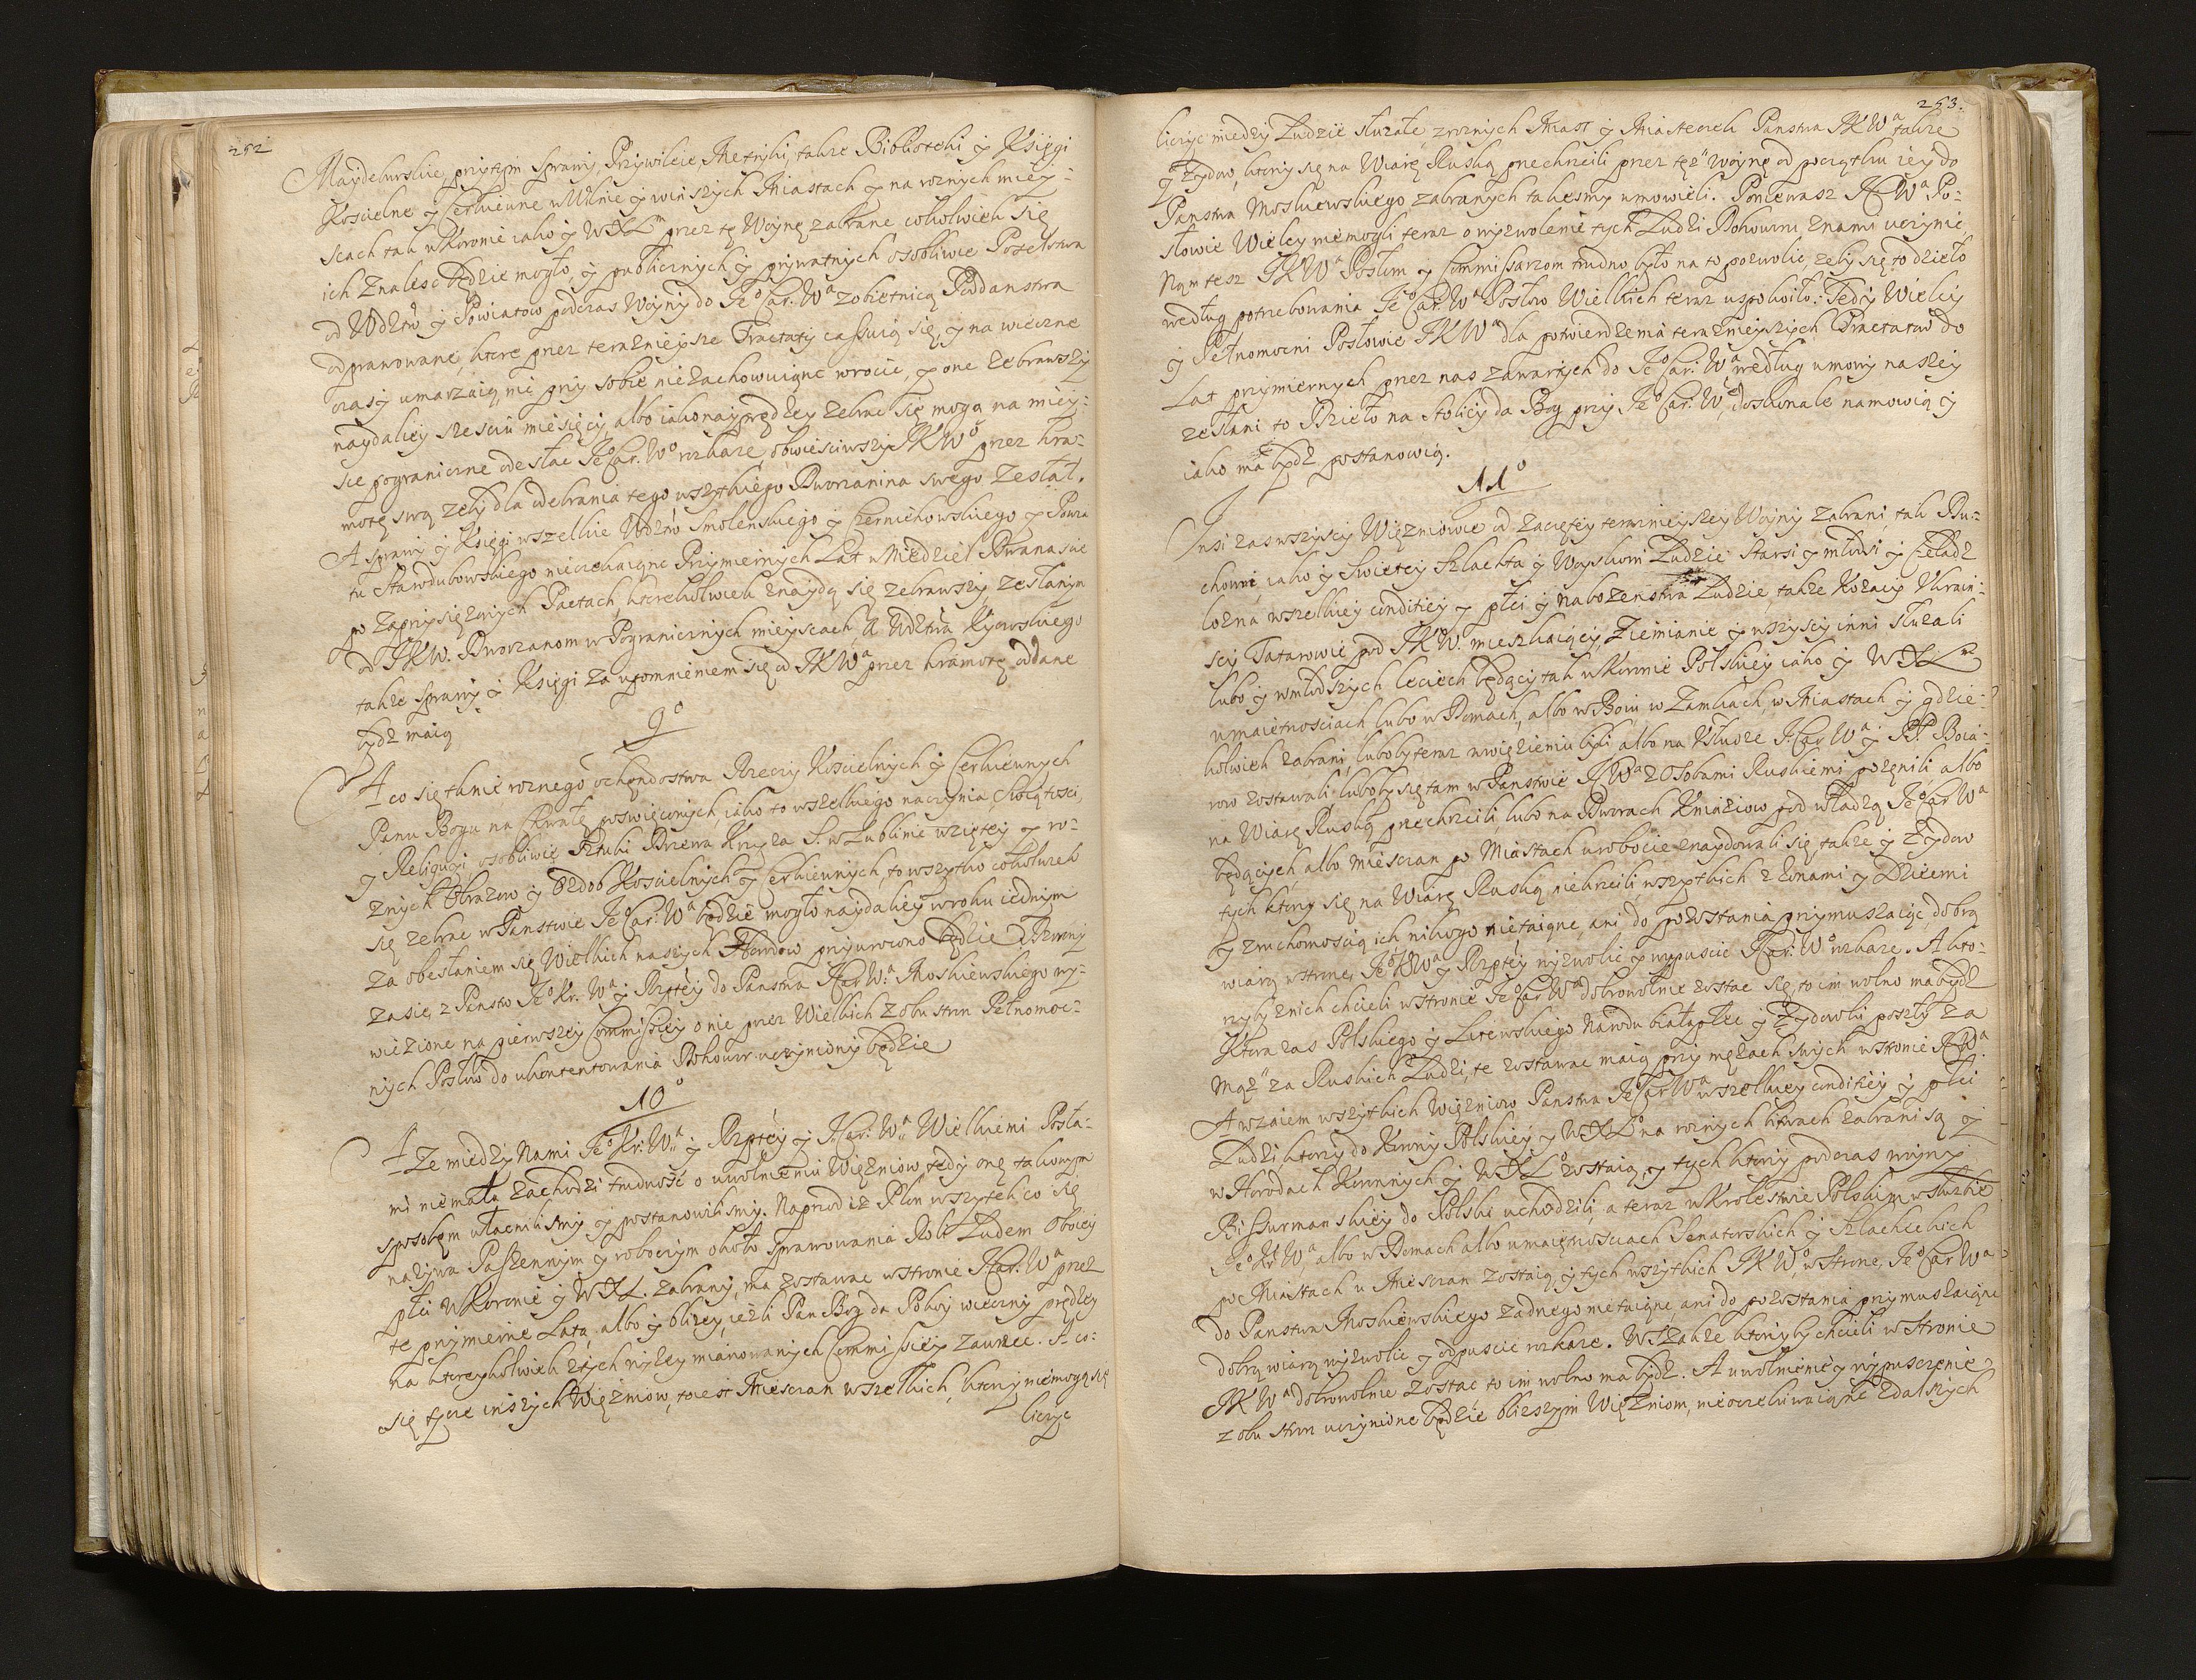 252
Maydeburskie, przytym sprawy, Przywileie, Metryki, także Biblioteki y Księgi
Koscielne y Cerkiewne w Wilnie y w inszych Miastach y na roznych miey-
scach tak w Koronie iako y WXL^m przez tę Woynę zabrane cokolwiek się
ich znalesc będzie mogło, y publicznych y prywatnych osobliwie Poselstwa
od Wdztw y Powiatow podczas Woyny do Je^o Car. W^a z obietnicą Poddanstwa
odprawowane, ktore przez teraznieysze Tractaty cassuią się, y na wieczne
czasy umarzaią, nic przy sobie niezachowuiąc wrocic, y one zebrawszy
naydaliey szesciu miesięcy albo iako nayprędzey zebrac się mogą na miey-
sce pograniczne odesłac Je^o Car. W^o rozkaze, obwiesciwszy JKW^o przez hra-
motę swą zeby dla odebrania tego wszytkiego Dworzanina swego zesłał.
A sprawy y Księgi wszelkie Wdztw Smolenskiego y Czerniehowskiego y Powia
tu Starodubowskiego nieczekaiąc Przymiernych Lat w Niedziel Dwanascie
po zaprzysięzonych Pactach, ktorekolwiek znaydą się zebrawszy, zesłanym
od JKW. Dworzanom w Pogranicznych mieyscach, a Wdztwa Kyiowskiego
także sprawy y Księgi za upomnieniem się od JKW^a przez hramotę oddane
bydz maią
9^o
A co się tknie roznego ochędostwa Rzeczy Koscielnych y Cerkiewnych
Panu Bogu na Chwałę poswięconych, iako to wszelkiego naczynia Swiątosci,
y Religuyi, osobliwie Sztuki Drzewa Krzyza S. w Lublinie wziętey y ro-
znych Obrazow y Ozdob Koscielnych y Cerkiewnych, to wszytko cokolwiek
się zebrac w Panstwie Je^o Car. W^a będzie mogło naydaliey w roku iednym
za obesłaniem się Wielkich naszych Hdrow przywrocono będzie. Dzwony
zasie, z Panstw Je^o Kr. W^a y Rzptey do Panstwa JCar W^a Moskiewskiego wy-
wiezione na pierwszey Commissiey o nie przez Wielkich z obu stron Pełnomoc-
nych Posłow do ukontentowania Dokowor uczyniony będzie
10^o
A ze miedzy Nami Je^o Kr. W^a y Rzptey y J. Car. W^a Wielkiemi Posła-
mi niemała zachodzi trudność o uwolnieniu Więzniow, tedy onę takowym
sposobem ułacnilismy y postanowilismy. Naprzod iz Plon wszytek co się
nazywa Paszennym y robocizym około sprawowania Roli Ludem oboiey
płci w Koronie y WXL. zabrany, ma zostawac w stronie JCar. W^a przez
te przymierne Lata, albo y blizey, iezli Pan Bog da Pokoy wieczny prędzey
na ktoreykolwiek z tych wyzey mianowanych Commissiey zawrzec. A co-
się tycze inszych Więzniow, to iest Miesczan wszelkich, ktorzy niemogą się
liczyc
253.
liczyc miedzy Ludzie słuzałe z roznych Miast y Miasteczek Panstwa JKW^a także
y Zydow, ktorzy się na Wiarę Ruską przechrzcili przez tęz Woynę od początku iey do
Panstwa Moskiewskiego zabranych takesmy umowieli. Poniewasz JCW^a Po-
słowie Wielcy niemogli teraz o wyzwolenie tych Ludzi Dokoworu z nami uczynić,
Nam tesz JKW^a Posłom y Commissarzom trudno było na to pozwolic zeby się to dzieło
według potrzebowania Je^o Car. W^a Posłow Wielkich teraz uspokoiło: Tedy Wielcy
y Pełnomocni Posłowie JKW^a dla potwierdzenia teraznieyszych Tractatow do
Lat przymiernych przez nas zawartych do Je^o Car. W^a według umowy naszey
zesłani to Dzieło na Stolicy da Bog przy Je^o Car. W^a doskonale namowią y
iako ma bydz postanowią.
11^o
Inszi zas wszyscy Więzniowie od zaciętey terazniejszey Woyny zabrani, tak Du-
chowni, iako y Swietcy Szlachta y Woyskowi Ludzie Starsi y młodsi y Czeladz
lozna wszelkiey conditiey y płci y nabozenstwa Ludzie, także Kozacy Ukrain-
scy Tatarowie pod JKW. mieszkaiący, Ziemianie y wszyscy inni słuzali
lubo y w młodszych leciech będący tak w Koronie Polskiey iako y WXL^m
w maiętnosciach, lubo w Domach, albo w Boiu, w Zamkach, w Miastach y gdzie-
kolwiek zabrani, luboby teraz w więzieniu byli, albo na Usłudze J. Car W^a y PP. Boia-
row zostawali: luboby się tam w Panstwie JCW^a z Osobami Ruskiemi pozenili albo
na Wiarę Ruską przechrzcili, lubo na Dworach Kniaziow pod władzą Je^o Car W^a
będących, albo Miesczan po Miastach w robocie znaydowali się, także y Zydow
tych ktorzy się na Wiarę Ruską niekrzcili, wszytkich z zonami y Dziecmi
y z ruchomoscią ich nikogo nietaiąc, ani do pozostania przymuszaiąc, dobrą
wiarą w stronę Je^o KW^a y Rzptey wyzwolic y wypuscic JCar. W^o rozkaze. A kto-
ryby z nich chcieli w stronie Je^o Car W^a dobrowolnie zostac się, to im wolno ma bydz
Ktora zas Polskiego y Litewskiego Narodu białapłec y Zydowki poszły za
mąz za Ruskich Ludzi, te zostawac maią przy męzach swych w stronie JCW^a.
A wzaiem wszytkich Więzniow Panstwa Je^o Car W^a wszelkiey conditiey y płci
Ludzi, ktorzy do Korony Polskiey y WXL^o na roznych bitwach zabrani są y
w Horodach Koronnych y WXL^o zostaią, y tych ktorzy podczas woyny
Bissurmanskiey do Polski uchodzili, a teraz w Krolestwie Polskim w słuzbie
Je^o Kr W^a, albo w Domach albo w maiętnosciach Senatorskich y Szlacheckich
po Miastach u Miesczan zostaią, y tych wszytkich JKW^o, w stronę, Je^o Car W^a
do Panstwa Moskiewskiego zadnego nietaiąc, ani do pozostania przymuszaiąc
dobrą wiarą wyzwolic y odpuscic rozkaze. Wszakze ktorzyby chcieli w stronie
JKW^a dobrowolnie zostać, to im wolno ma bydz. A uwolnienie y wypuszczenie
z obu stron uczynione będzie blizszym Więzniom, nieoczekiwaiąc zdalszych